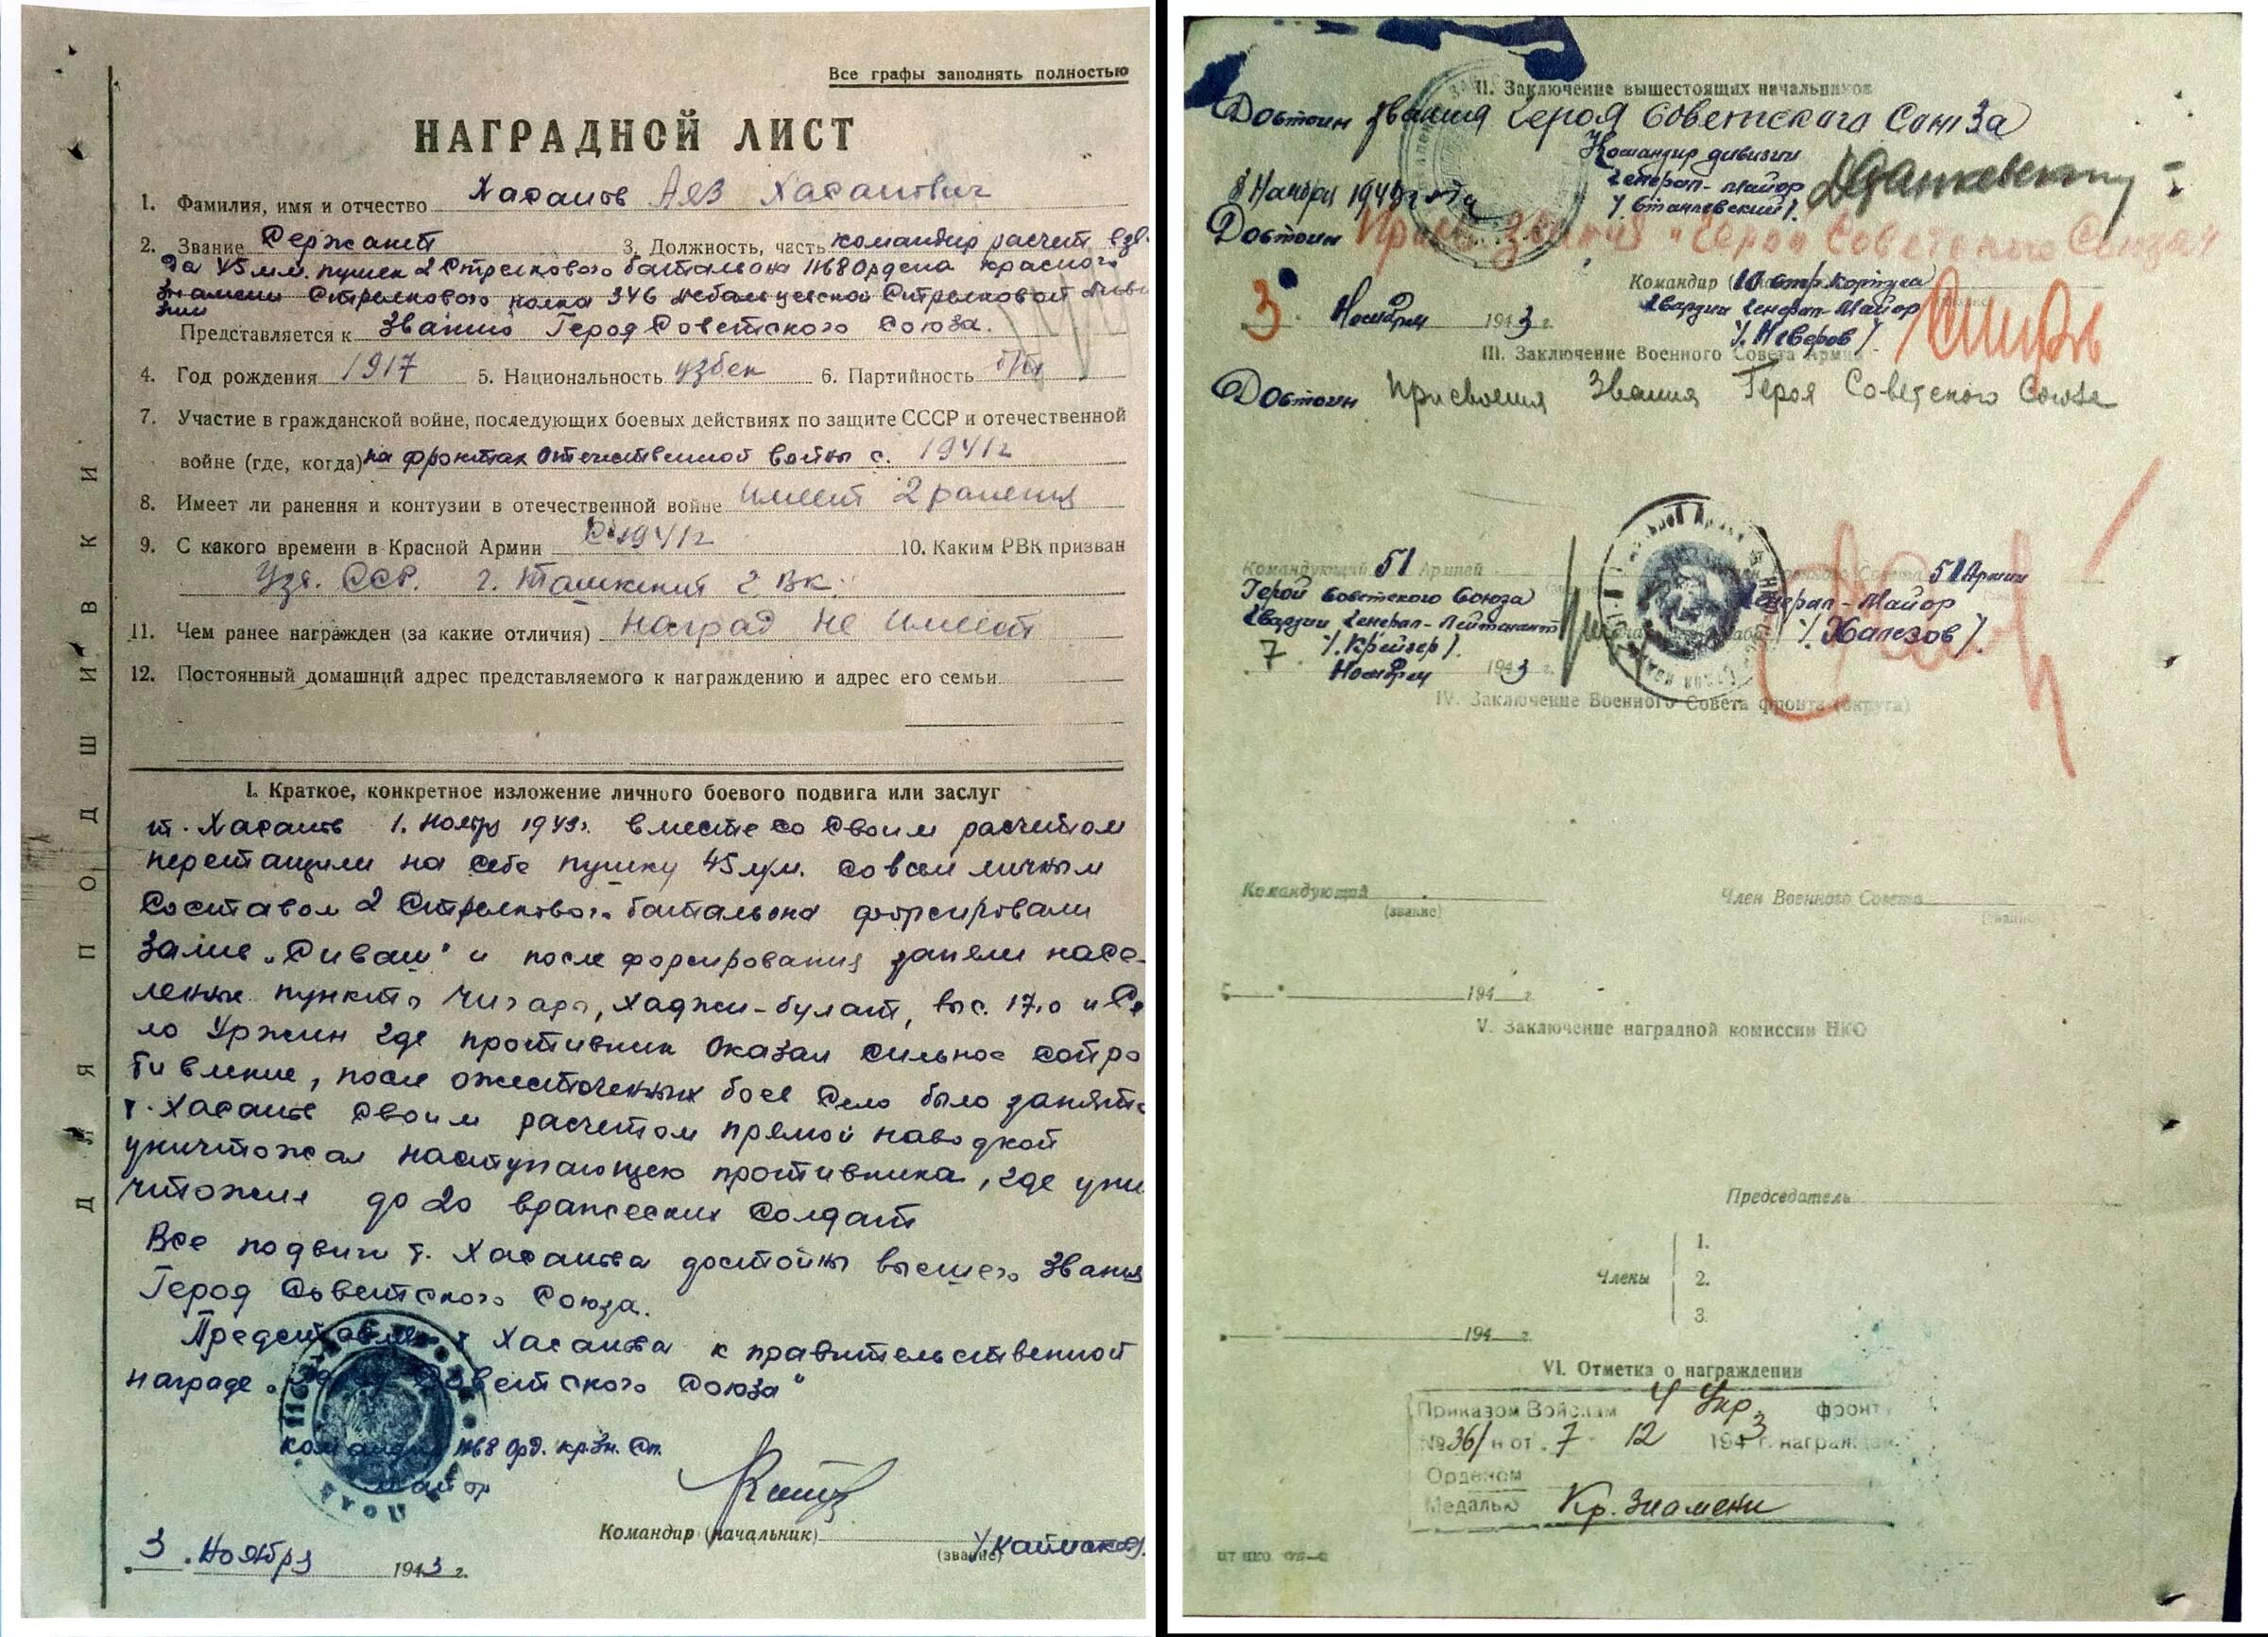 Все графы заполнять полностью
НАГРАДНОЙ ЛИСТ
1. Фамилия, имя и отчество Хасанов Аяз Хасанович
2. Звание Сержант 3. Должность, часть командир расчета взво
да 45 м.м. пушек 2 Стрелкового батальона 1168 Ордена Красного
Знамени Стрелкового полка 346 Дебальцевской Стрелковой Диви
зии
Представляется к Званию Герой Советского Союза.
4. Год рождения 1917 5. Национальность узбек 6. Партийность б/п
7. Участие в гражданской войне, последующих боевых действиях по защите СССР и отечественной
войне (где, когда) на фронтах Отечественной войны с. 1941г
8. Имеет ли ранения и контузии в отечественной войне имеет 2 ранения
9. С какого времени в Красной Армии С 1941г 10. Каким РВК призван
Узб. ССР. г. Ташкент г. ВК.
11. Чем ранее награжден (за какие отличия) наград не имеет
12. Постоянный домашний адрес представляемого к награждению и адрес его семьи
ДЛЯ ПОДШИВКИ
I. Краткое, конкретное изложение личного боевого подвига или заслуг
т. Хасанов 1. Ноября 1943г. вместе со своим расчетом
перетащили на себе пушку 45 м/м. со всем личным
Составом 2 Стрелкового батальона форсировали
Залив „Сиваш" и после форсирования заняли насе-
ленные пункты Чигары, Хаджи-булат, выс. 17.0 и Се
ло Уржин где противник Оказал сильное сопро
тивление, после ожесточенных боев Село было занято
т. Хасанов своим расчетом прямой наводкой
уничтожал наступающего противника, где уни
чтожил до 20 вражеских солдат
Все подвиги т. Хасанова достойны высшего Звания
Герой Советского Союза.
Представляю т Хасанова к правительственной
награде Советского Союза"
командир 1168 Орд. кр. Зн. Сп.
майор
Командир (начальник)
(звание) /Каймаков/.
3. Ноября 1943 г.
II. Заключение вышестоящих начальников
Достоин звания Героя Советского Союза
Командир дивизии
Генерал-майор
/Станкевский/.
3 Ноября 1943 года
Достоин Присв. Звания "Героя Советского Союза"
Командир 10 стр. корпуса
Гвардии Генерал-Майор
/Неверов/.
3. Ноября 1943 г.
III. Заключение Военного Совета Армии
Достоин Присвоения Звания Героя Советского Союза
Командующий 51 Армией
Член Военного Совета 51 Армии
Герой Советского Союза
Генерал-Майор
Гвардии Генерал-Лейтенант
/Халезов/.
/Крейзер/.
7 Ноября 1943 г.
IV. Заключение Военного Совета фронта (округа)
Командующий
(звание)
Член Военного Совета
194 г.
V. Заключение наградной комиссии НКО
Председатель
Члены
1.
2.
3.
194 г.
VI. Отметка о награждении
Приказом Войскам 4 Укр. фронт
№36/н от 7 12 1943 г. награжден
Орденом
Медалью Кр. Знамени